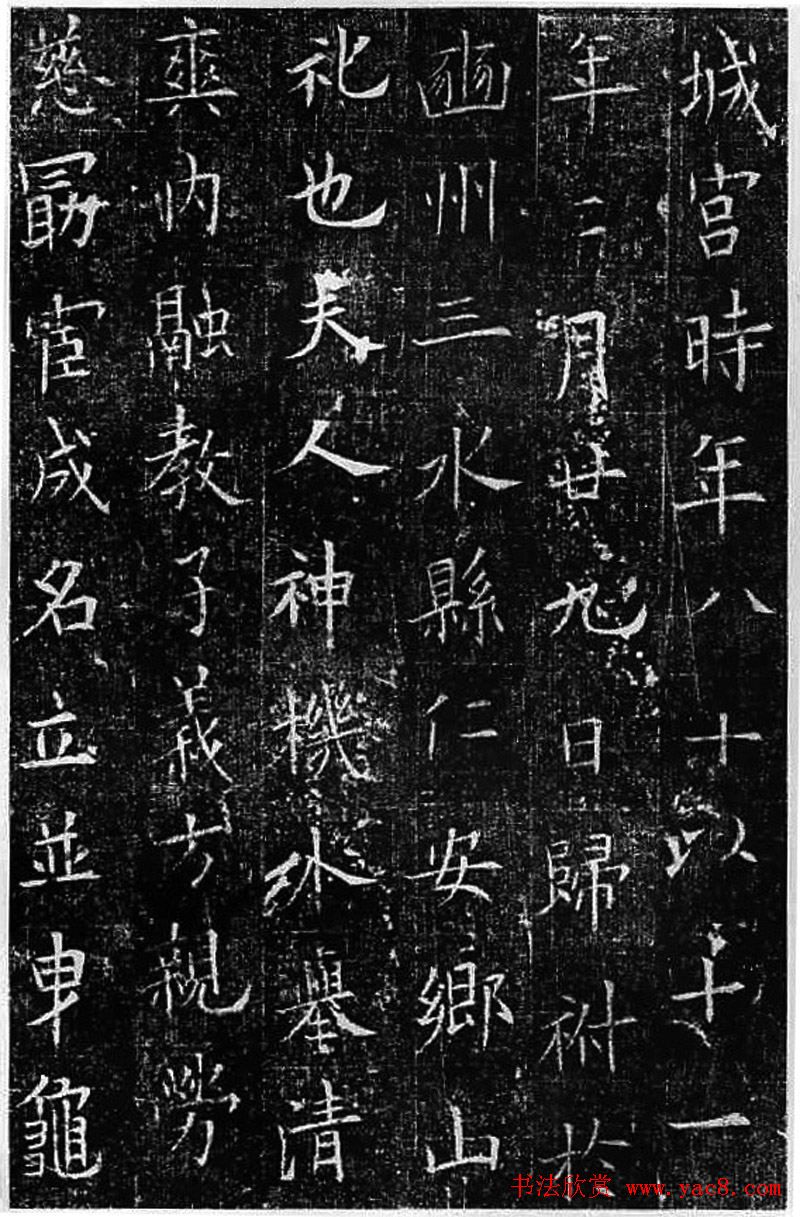 城宮時年八十以十一
年二月廿九日歸祔於
豳州三水縣仁安鄉山
礼也夫人神機外清
爽內融教子義方親勞
慈勗宦成名立並龜
书法欣赏 www.yac8.com